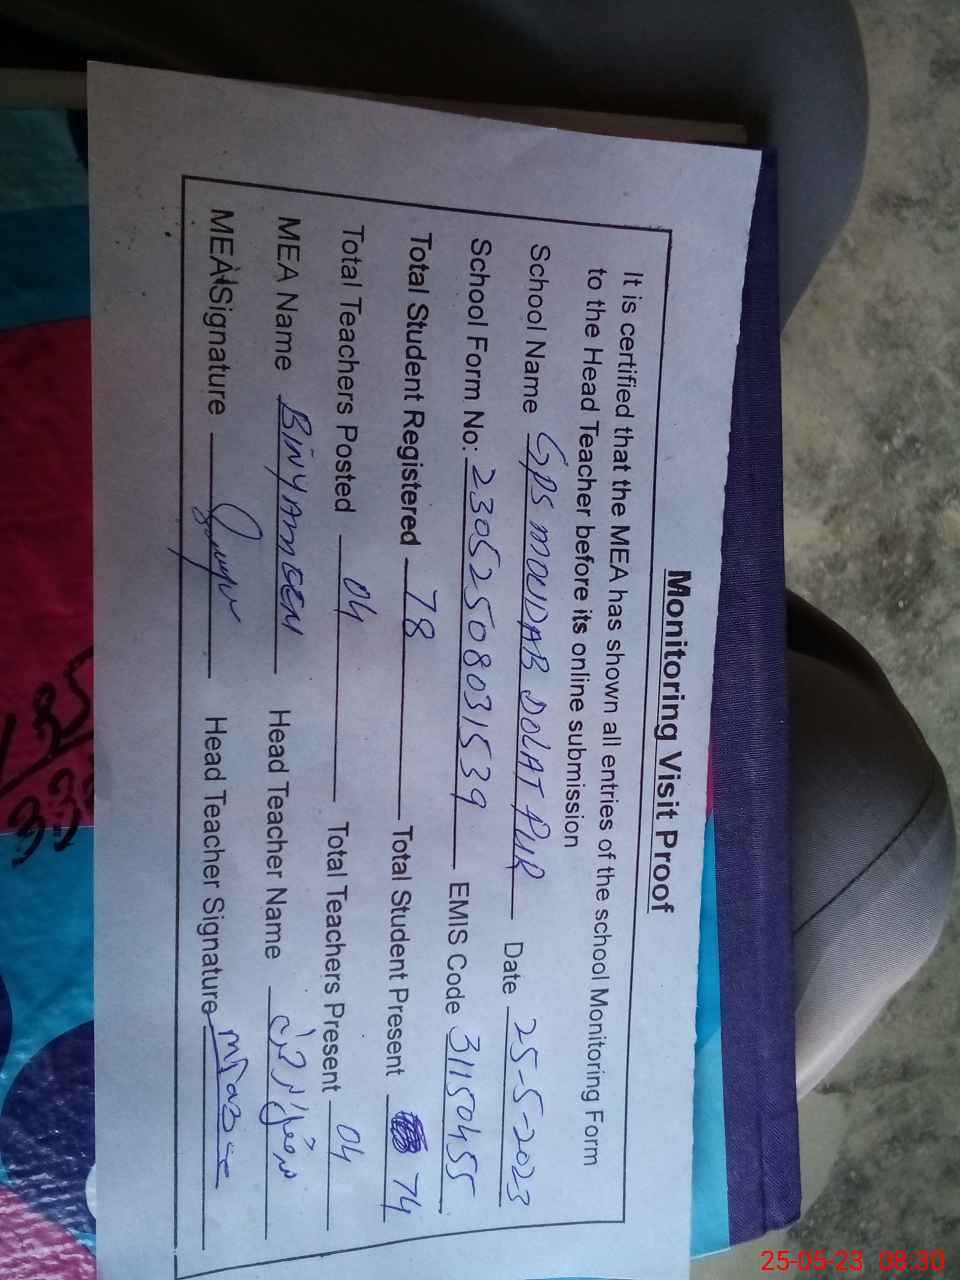 Monitoring Visit Proof
It is certified that the MEA has shown all entries of the school Monitoring Form
to the Head Teacher before its online submission
School Name GPS MOUDAB DOLAT PUR Date 25-5-2023
School Form No: 23052508031539 EMIS Code 31150455
Total Student Registered 78 Total Student Present 74
Total Teachers Posted 04 Total Teachers Present 04
MEA Name BINYAMEEN Head Teacher Name
MEA Signature Head Teacher Signature
25-05-23 08:30